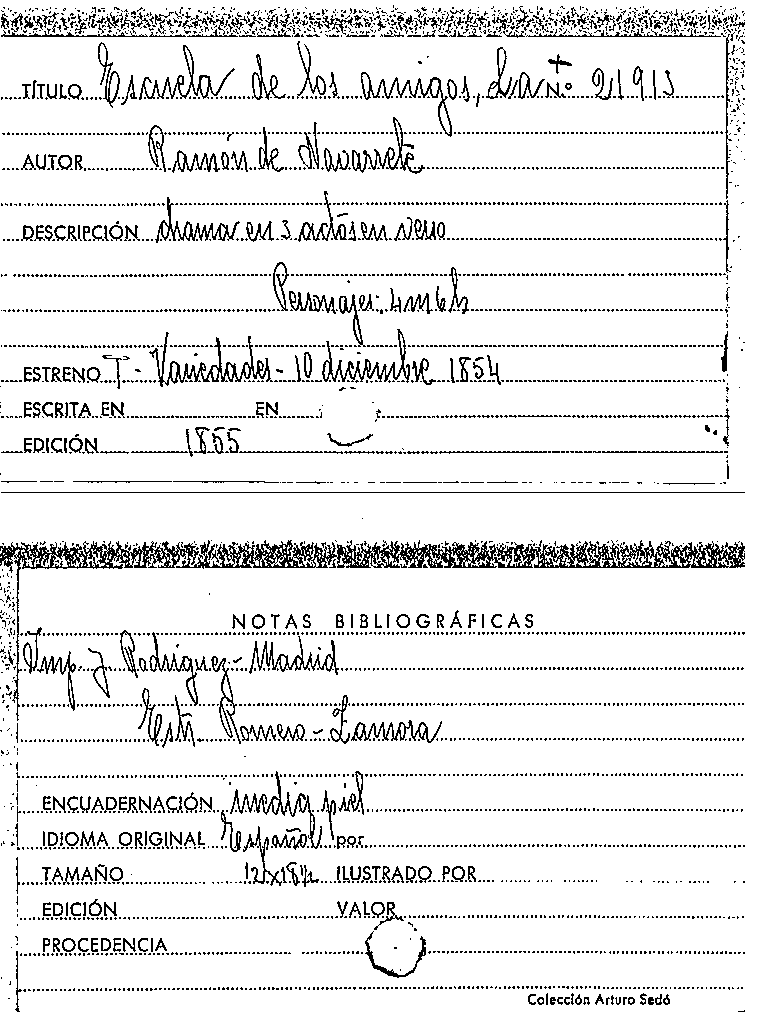 TÍTULO Escuela de los amigos, La N.º 21913
AUTOR Ramón de Navarrete
DESCRIPCIÓN drama en 3 actos en verso
Personajes: 4m 6h
ESTRENO T. Variedades - 10 diciembre 1854
ESCRITA EN EN
EDICIÓN 1855
NOTAS BIBLIOGRÁFICAS
Imp. J. Rodriguez - Madrid
Estr. Romero - Zamora
ENCUADERNACIÓN media piel
IDIOMA ORIGINAL Español por
TAMAÑO 12x18½ ILUSTRADO POR
EDICIÓN VALOR
PROCEDENCIA
Colección Arturo Sedó